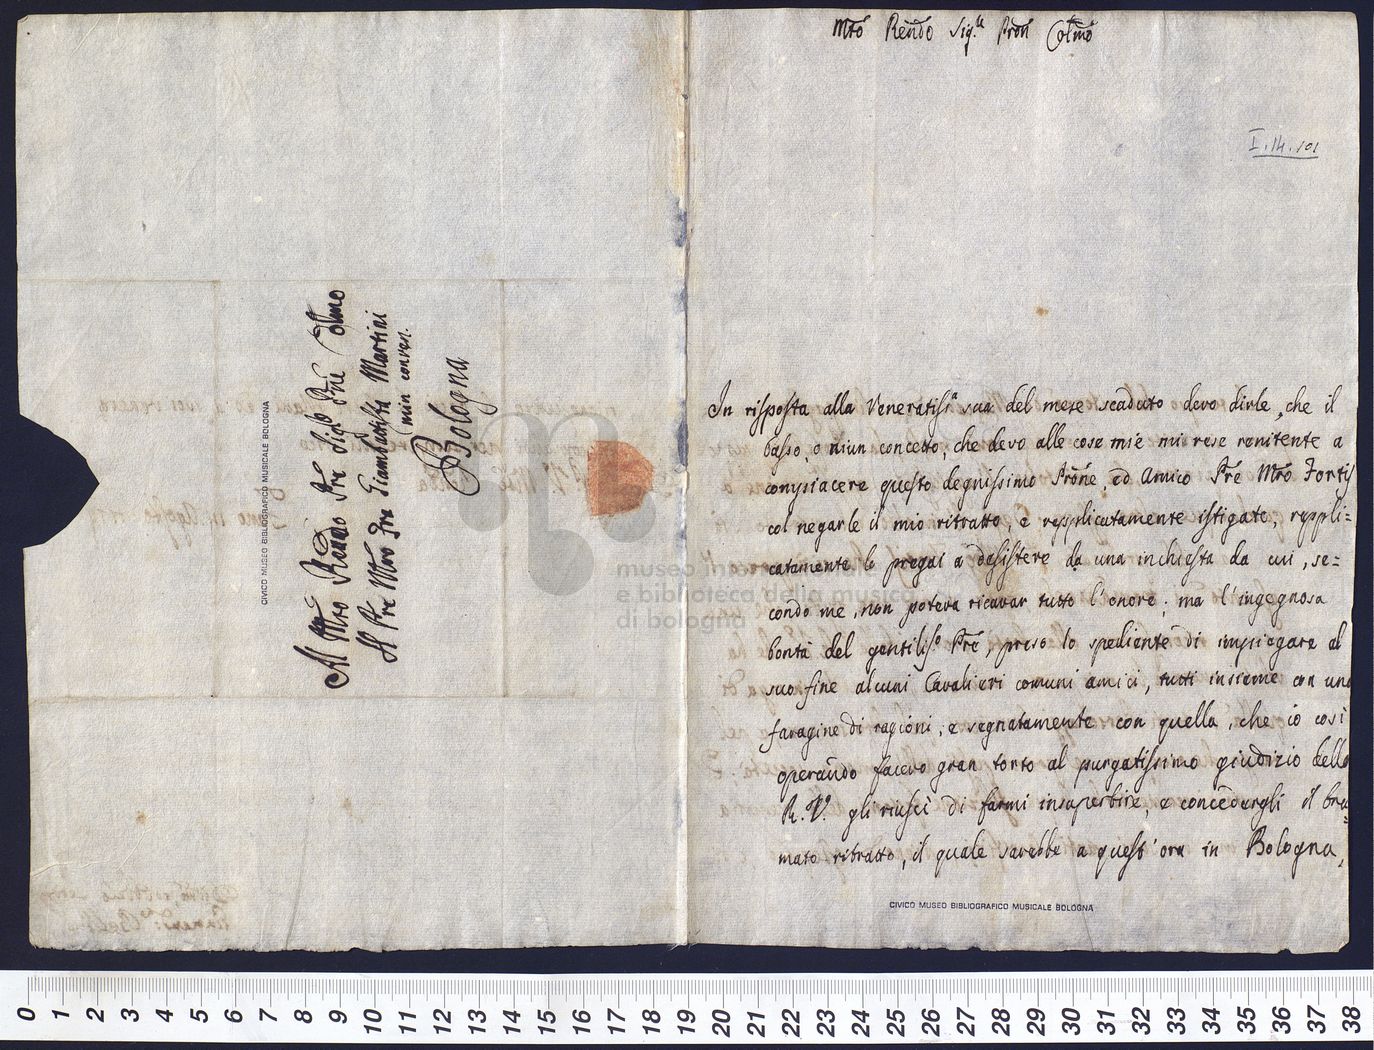 Al Mto Rẽndo Pre Sigre Pñe Colmo
Al Pre Mõro Fra Giambattista Martini
min conven.
Bologna
CIVICO MUSEO BIBLIOGRAFICO MUSICALE BOLOGNA
Mto Rẽndo Sigre Pron Colmo
I.14.101
In risposta alla Veneratisa sua del mese scaduto devo dirle, che il
basso, o niun concetto, che devo alle cose mie mi rese renitente a
conpiacere questo degnissimo Prõne, ed Amico Pre Mro Fortis
col negarle il mio ritratto, e repplicatamente istigato, reppli=
catamente lo pregai a desistere da una inchiesta da cui, se=
condo me, non poteva ricavar tutto l'onore; ma l'ingegnosa
bontà del gentiliso Pre, preso lo spediente di impiegare al
suo fine alcuni Cavalieri comuni amici, tutti insieme con una
faragine di ragioni, e segnatamente con quella, che io così
operando facevo gran torto al purgatissimo giudizio della
R. V. gli riuscì di farmi insuperbire, e concedergli il bra=
mato ritratto, il quale sarebbe a quest'ora in Bologna,
CIVICO MUSEO BIBLIOGRAFICO MUSICALE BOLOGNA
museo internazionale
e biblioteca della musica
di bologna
0 1 2 3 4 5 6 7 8 9 10 11 12 13 14 15 16 17 18 19 20 21 22 23 24 25 26 27 28 29 30 31 32 33 34 35 36 37 38